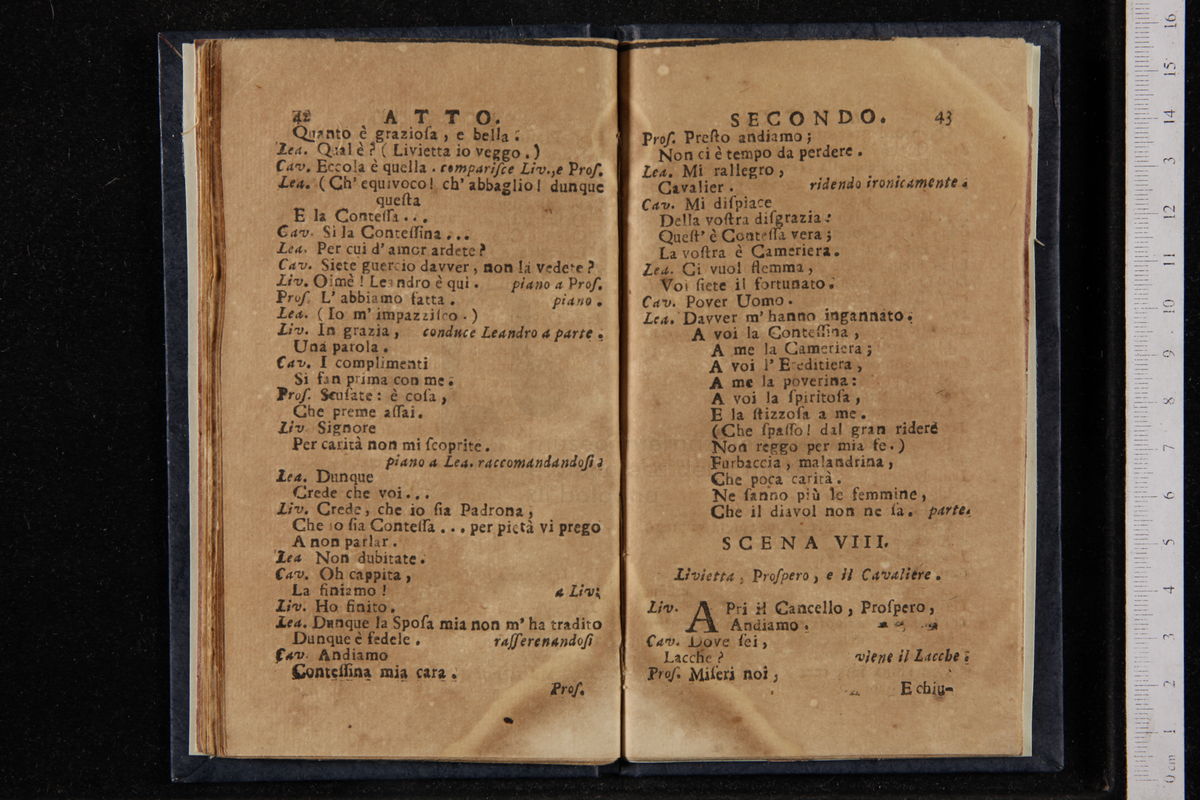 42 ATTO.
Quanto è grazioſa, e bella.
Lea. Qual è? ( Livietta io veggo. )
Cav. Eccola è quella. compariſce Liv., e Proſ.
Lea. ( Ch' equivoco! ch' abbaglio! dunque
queſta
E la Conteſſa...
Cav. Si la Conteſſina...
Lea. Per cui d'amor ardete?
Cav. Siete guercio davver, non la vedete?
Liv. Oimè! Leandro è qui. piano a Proſ.
Proſ. L' abbiamo fatta. piano.
Lea. ( Io m' impazziſco. )
Liv. In grazia, conduce Leandro a parte.
Una parola.
Cav. I complimenti
Si fan prima con me.
Proſ. Scuſate: è coſa,
Che preme aſſai.
Liv. Signore
Per carità non mi ſcoprite.
piano a Lea. raccomandandoſi.
Lea. Dunque
Crede che voi...
Liv. Crede, che io ſia Padrona,
Che io ſia Conteſſa... per pietà vi prego
A non parlar.
Lea Non dubitate.
Cav. Oh cappita,
La finiamo! a Liv.
Liv. Ho finito.
Lea. Dunque la Spoſa mia non m' ha tradito
Dunque è fedele. raſſerenandoſi
Cav. Andiamo
Conteſſina mia cara.
Proſ.
SECONDO. 43
Proſ. Preſto andiamo;
Non ci è tempo da perdere.
Lea. Mi rallegro,
Cavalier. ridendo ironicamente.
Cav. Mi diſpiace
Della voſtra diſgrazia:
Queſt' è Conteſſa vera;
La voſtra è Cameriera.
Lea. Ci vuol flemma,
Voi ſiete il fortunato.
Cav. Pover Uomo.
Lea. Davver m' hanno ingannato.
A voi la Conteſſina,
A me la Cameriera;
A voi l' Ereditiera,
A me la poverina:
A voi la ſpiritoſa,
E la ſtizzoſa a me.
(Che ſpaſſo! dal gran ridere
Non reggo per mia fe.)
Furbaccia, malandrina,
Che poca carità.
Ne ſanno più le femmine,
Che il diavol non ne ſa. parte.
SCENA VIII.
Livietta, Proſpero, e il Cavaliere.
Liv. APri il Cancello, Proſpero,
Andiamo.
Cav. Dove ſei,
Lacchè? viene il Lacchè.
Proſ. Miſeri noi,
E chiu-
0 cm 1 2 3 4 5 6 7 8 9 10 11 12 13 14 15 16